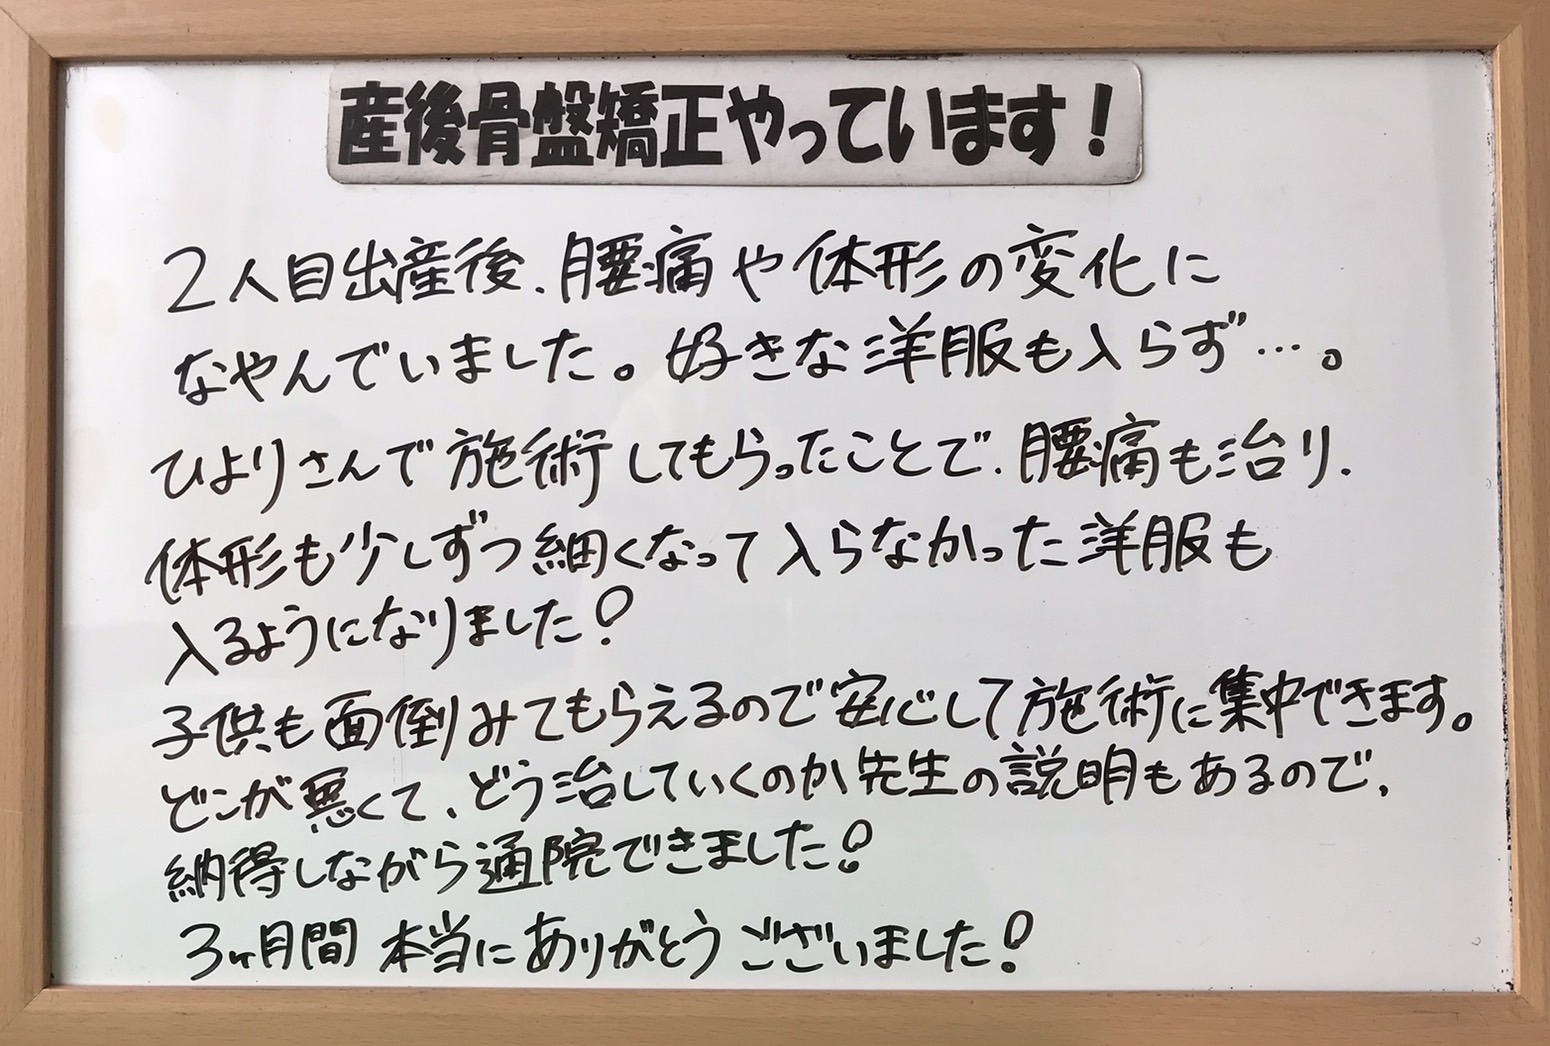 産後骨盤矯正やっています！
2人目出産後、腰痛や体形の変化に
なやんでいました。好きな洋服も入らず…。
ひよりさんで施術してもらったことで、腰痛も治り、
体形も少しずつ細くなって入らなかった洋服も
入るようになりました！
子供も面倒みてもらえるので安心して施術に集中できます。
どこが悪くて、どう治していくのか先生の説明もあるので、
納得しながら通院できました！
3ヶ月間 本当にありがとうございました！